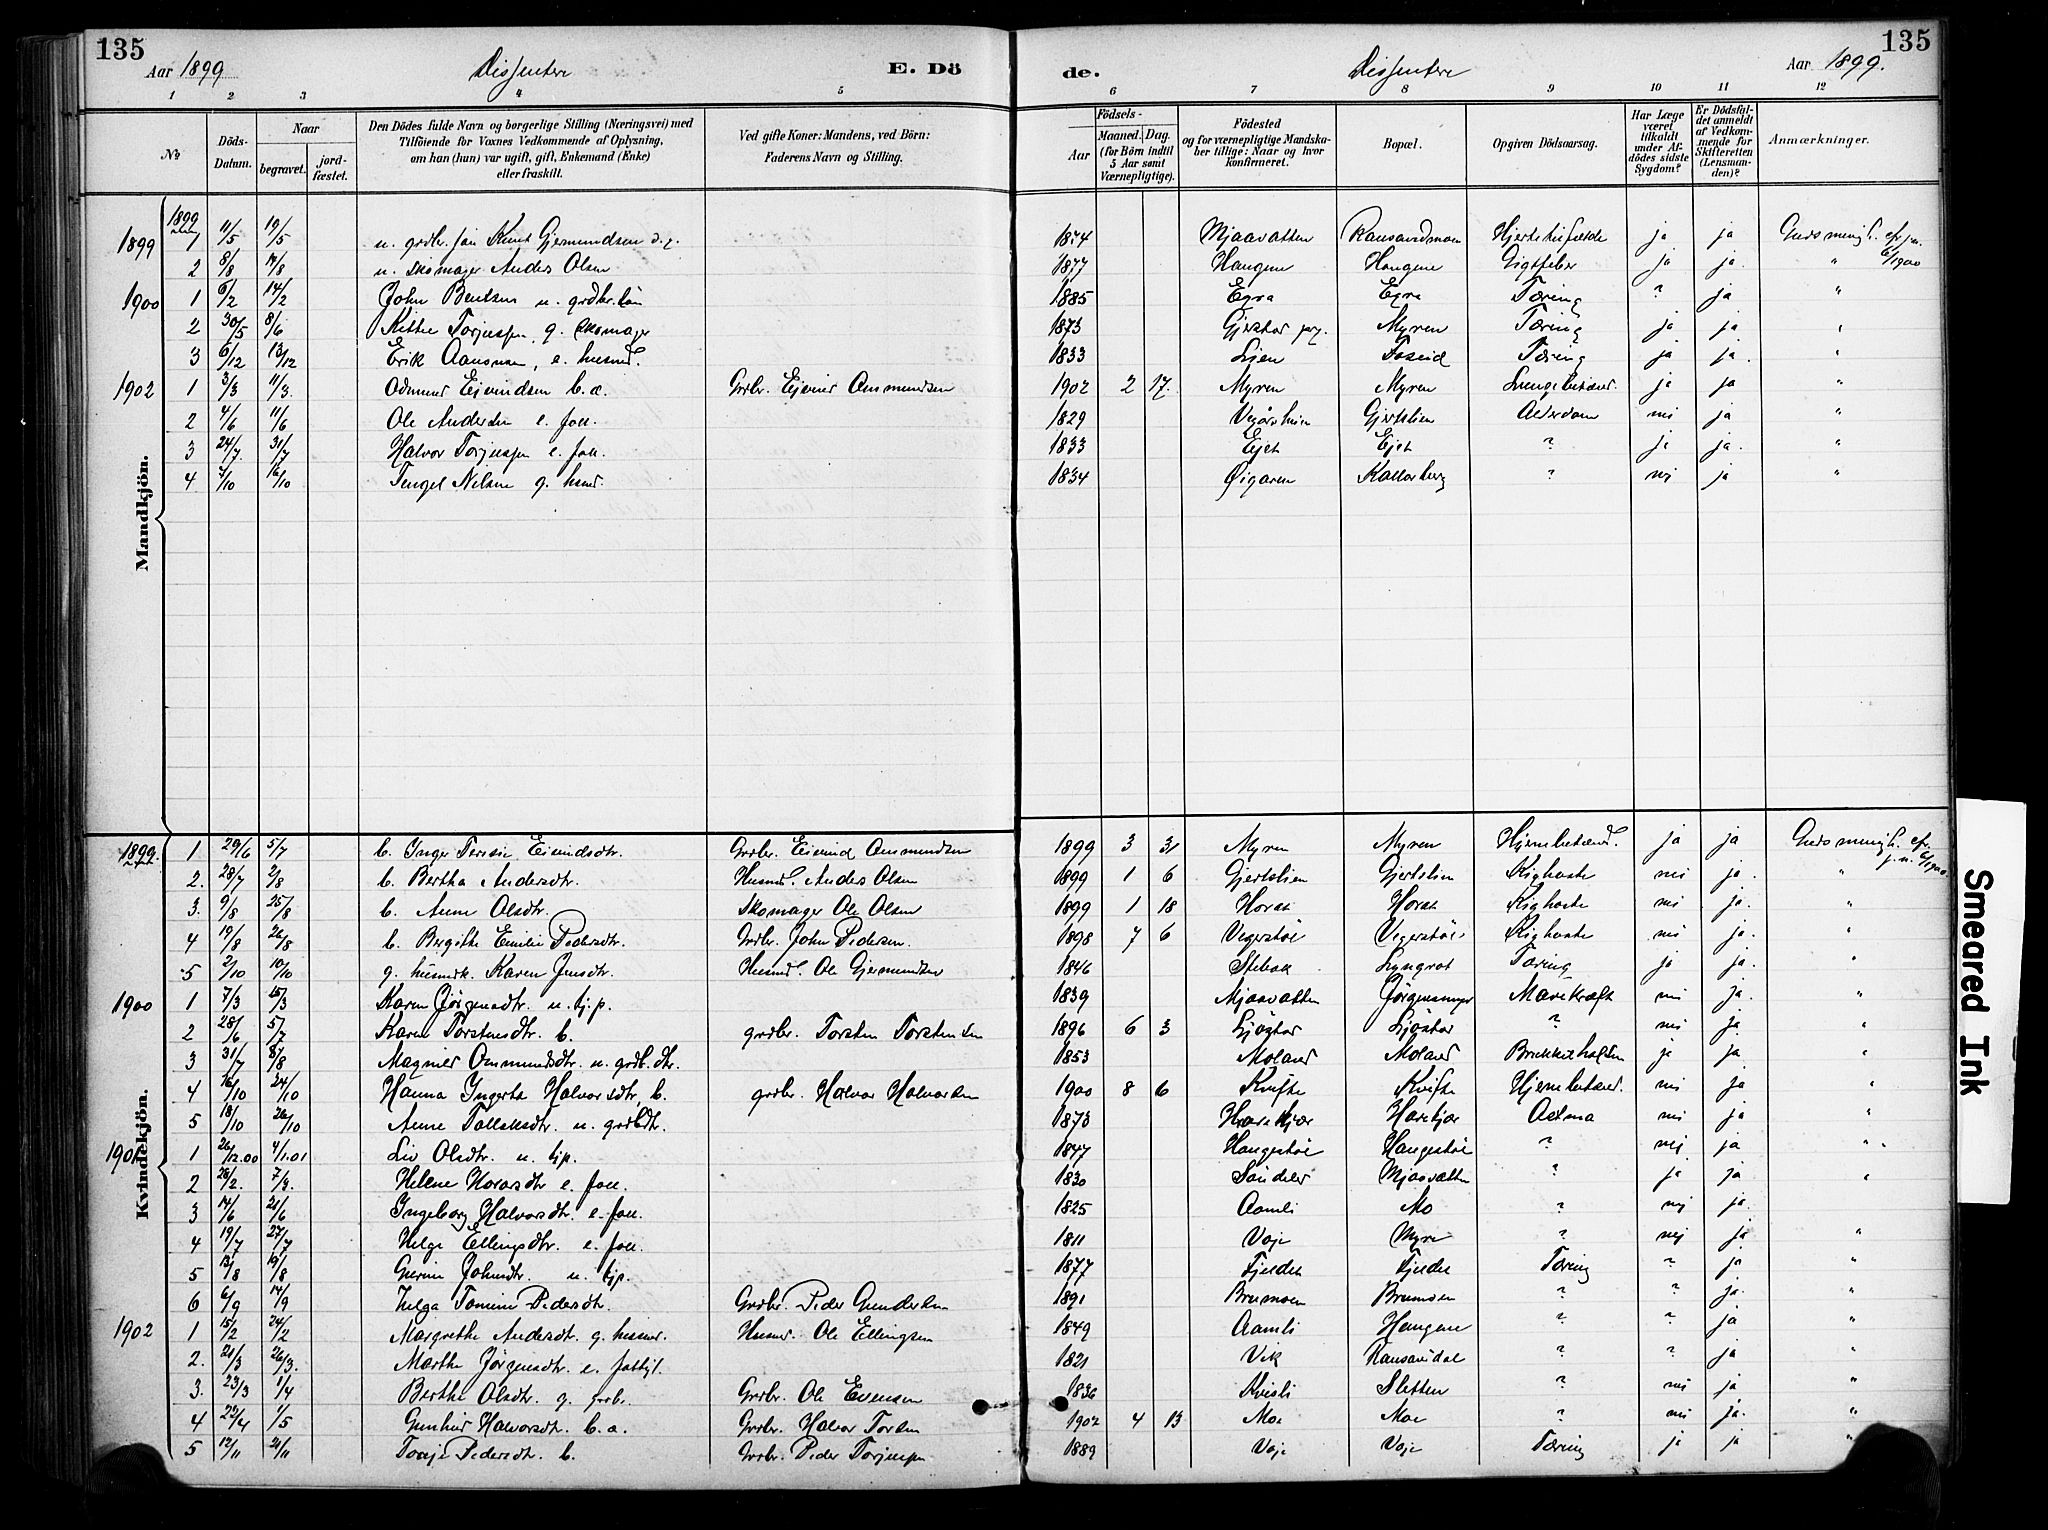 135
Aar 1899
Dissentere
E. Dö
de.
Dissentere
Aar 1899.
135
1 2 3 4 5 6 7 8 9 10 11 12
No
Döds-Datum.
Naar
begravet.
jord-fæstet.
Den Dödes fulde Navn og borgerlige Stilling (Næringsvei) med
Tilföiende for Voxnes Vedkommende af Oplysning,
om han (hun) var ugift, gift, Enkemand (Enke)
eller fraskilt.
Ved gifte Koner: Mandens, ved Börn:
Faderens Navn og Stilling.
Födsels-
Aar
Maaned. Dag.
(for Börn indtil
5 Aar samt
Værnepligtige).
Födested
og for værnepligtige Mandska-
ber tillige: Naar og hvor
konfirmeret.
Bopæl.
Opgiven Dödsaarsag.
Har Læge
været
tilkaldt
under Af-
dödes sidste
Sygdom?
Er Dödsfal-
det anmeldt
af Vedkom-
mende for
Skifteretten
(Lensman-
den)?
Anmærkninger.
Mandkjön.
1899 1 11/5 19/5 u. grdbr. sön Knut Gjermundsen 1874 Mjaavatten Ransandmoen ja ja
2 8/8 14/8 u. skomager Anders Olsen 1877 Haugene Haugene Gigtfeber ja ja. "
1900 1 6/2 14/2 John Bentsen u. grdbr. sön 1885 Egra Egra Tæring ? ja "
2 30/5 8/6 Kittil Torjussen g. skomager 1873 Gjerstad prg. Myren Tæring ja ja "
3 6/12 13/12 Erik Aanonsen, e. husmd. 1833 Lien Tæring ja ja. "
1902 1 3/3 11/3. Odmund Eivindsen b. a. Grdbr. Eivind Ommundsen 1902 2 17. Myren Myren Lungebetænd. ja ja "
2 4/6 11/6 Ole Andersen e. fol. 1829 Gjertslien Alderdom nei ja "
3 24/7. 31/7 Halvor Torjussen e. fol. 1833 Ejet Ejet ? ja ja. "
4 /10 16/10 Tengel Nilsen g. husmd. 1834 Øigaren ? nej ja "
Kvindekjön.
1899. 1 29/6 5/7 b. Inger Teresie Eivindsdtr. Grdbr. Eivind Ommundsen 1899 3 31 Myren Myren Hjernebetænd. ja ja
2. 28/7 2/8 b. Bertha Andersdtr. Husmd. Anders Olsen 1899 1 6 Gjertslien Gjertslien Kighoste nei ja. "
3. 9/8 25/8 b. Anne Olsdtr. Skomager Ole Olsen 1899 1 18 Kighoste nei ja. "
4 19/8 26/8 b. Bergithe Emilie Pedersdtr. Grdbr. John Pedersen. 1898 7 6 Vegerstøl Vegerstøl Kighoste nei ja. "
5 2/10 10/10 g. husmdk. Karen Jensdtr. Husmd. Ole Gjermundsen 1846 Stebak Lyngrot Tæring ja ja. "
1900 1 7/3 15/3 Karen Jørgensdtr. u. tj. p. 1839 Mjaavatten Mavekræft nei ja. "
2 28/6 5/7 Karen Torstensdtr. b. grdbr. Torsten Torstensen 1896 6 3 ? nei ja. "
3 31/7 8/8 Magnild Ommundsdtr. u. grdb. dtr. 1853 Moland Moland ja ja "
4 16/10 24/10 Hanna Ingerta Halvorsdtr. b. grdbr. Halvor Halvorsen 1900 8 6 Kvifte Kvifte Hjernebetænd. nei ja "
5 18/10 26/10 Anne Tallaksdtr. u. grdbdtr. 1873 Harekjær Astma nei ja "
1901 1 26/12.00 4/1.01 Liv Olsdtr. u. tjp. 1847 Haugestøl Haugestøl ? nej ja "
2 28/2. 7/3. Helene Haraldsdtr e. fol. 1830 Søndeled Mjaavatten ? ja ja "
3 14/6 21/6 Ingeborg Halvorsdtr. e. fol. 1825 Aamli Mo ? nej ja. "
4 19/7 27/7 Helge Ellingsdtr. e. fol. 1811 Voje Myre ? nej ja "
5 13/8 19/8 Gurine Johnsdtr. u. tjp. 1877 Fjeldet Fjeldet Tæring ? ja "
6 6/9 14/9 Helga Tomine Pedersdtr. Grdbr. Peder Gundersen 1891 Brumoen Brumoen ? ? ja. "
1902 1 15/2 24/2 Margrethe Andersdtr. g. husmd. Husmd. Ole Ellingsen 1849 Aamli Haugene ? ? ja "
2. 21/3 26/3. Marthe Jørgensdtr. e. fattigl. 1821 Vik ? ? ja "
3. 23/3 1/4 Berthe Olsdtr. g. grdb. Grdbr. Ole Evensen 1836 Kvisli Sletten ? nei ja "
4 22/4 1/5 Gunhild Halvorsdtr. b. a. Grdbr. Halvor Torsen 1902 4 13 Moe Moe ? nei ja. "
5 12/11 21/11 Tonje Pedersdtr. b. Grdbr. Peder Torjussen 1889 Voje Voje Tæring ja ja "
Smeared Ink